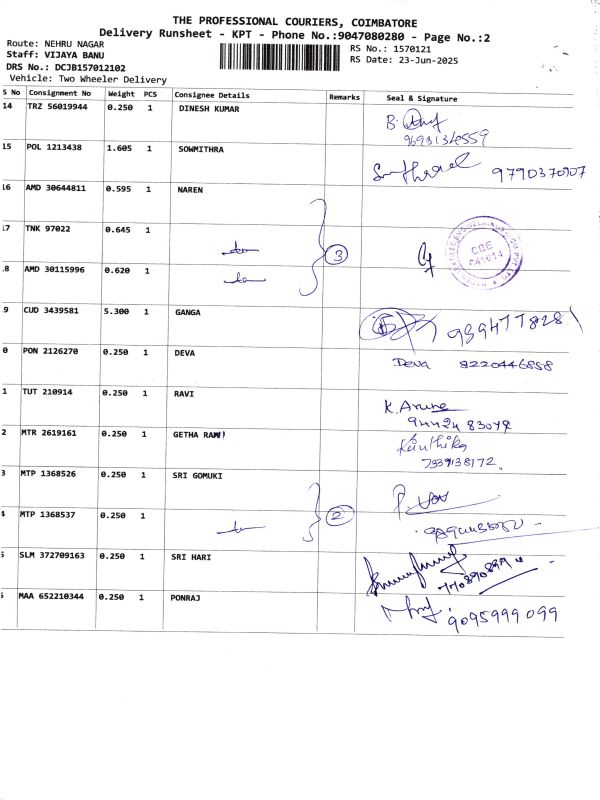 THE PROFESSIONAL COURIERS, COIMBATORE
Delivery Runsheet - KPT - Phone No.:9047080280 - Page No.:2
Route: NEHRU NAGAR
RS No.: 1570121
Staff: VIJAYA BANU
RS Date: 23-Jun-2025
DRS No.: DCJB157012102
Vehicle: Two Wheeler Delivery
S No Consignment No Weight PCS Consignee Details Remarks Seal & Signature
14 TRZ 56019944 0.250 1 DINESH KUMAR
15 POL 1213438 1.605 1 SOWMITHRA
9790370907
16 AMD 30644811 0.595 1 NAREN
17 TNK 97022 0.645 1
3
CBE
641014
18 AMD 30115996 0.620 1
9 CUD 3439581 5.300 1 GANGA
0 PON 2126270 0.250 1 DEVA
Deva 8220446858
1 TUT 210914 0.250 1 RAVI
K. Arune
94424 83048
2 MTR 2619161 0.250 1 GETHA RAMI
Kanthika
7339138172
3 MTP 1368526 0.250 1 SRI GOMUKI
2
4 MTP 1368537 0.250 1
5 SLM 372709163 0.250 1 SRI HARI
MAA 652210344 0.250 1 PONRAJ
9095999099